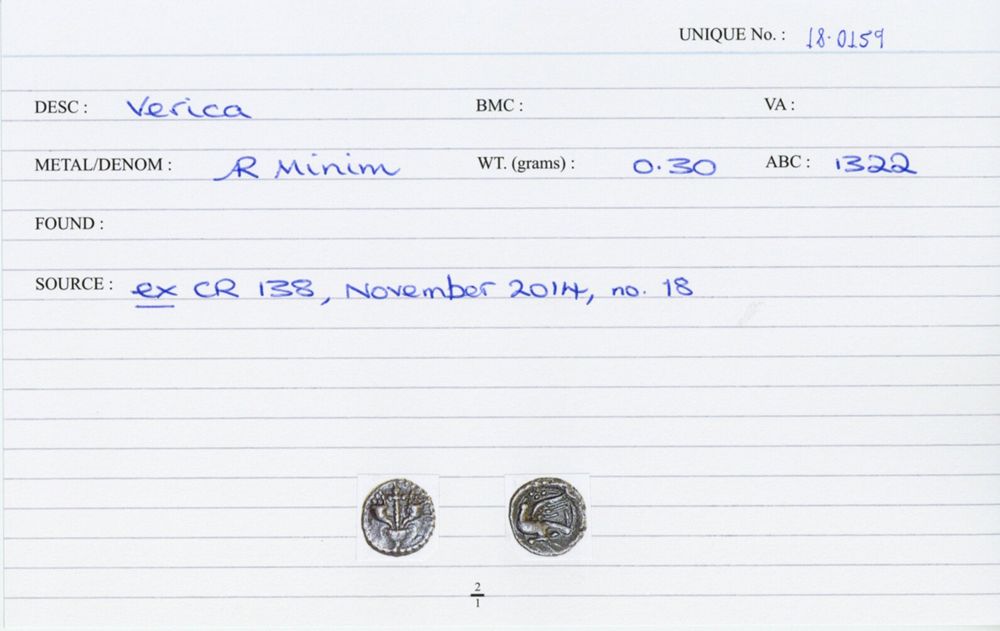 UNIQUE No. : 18.0159
DESC : Verica BMC : VA :
METAL/DENOM : AR Minim WT. (grams) : 0.30 ABC : 1322
FOUND :
SOURCE : ex CR 138, November 2014, no. 18
2
1